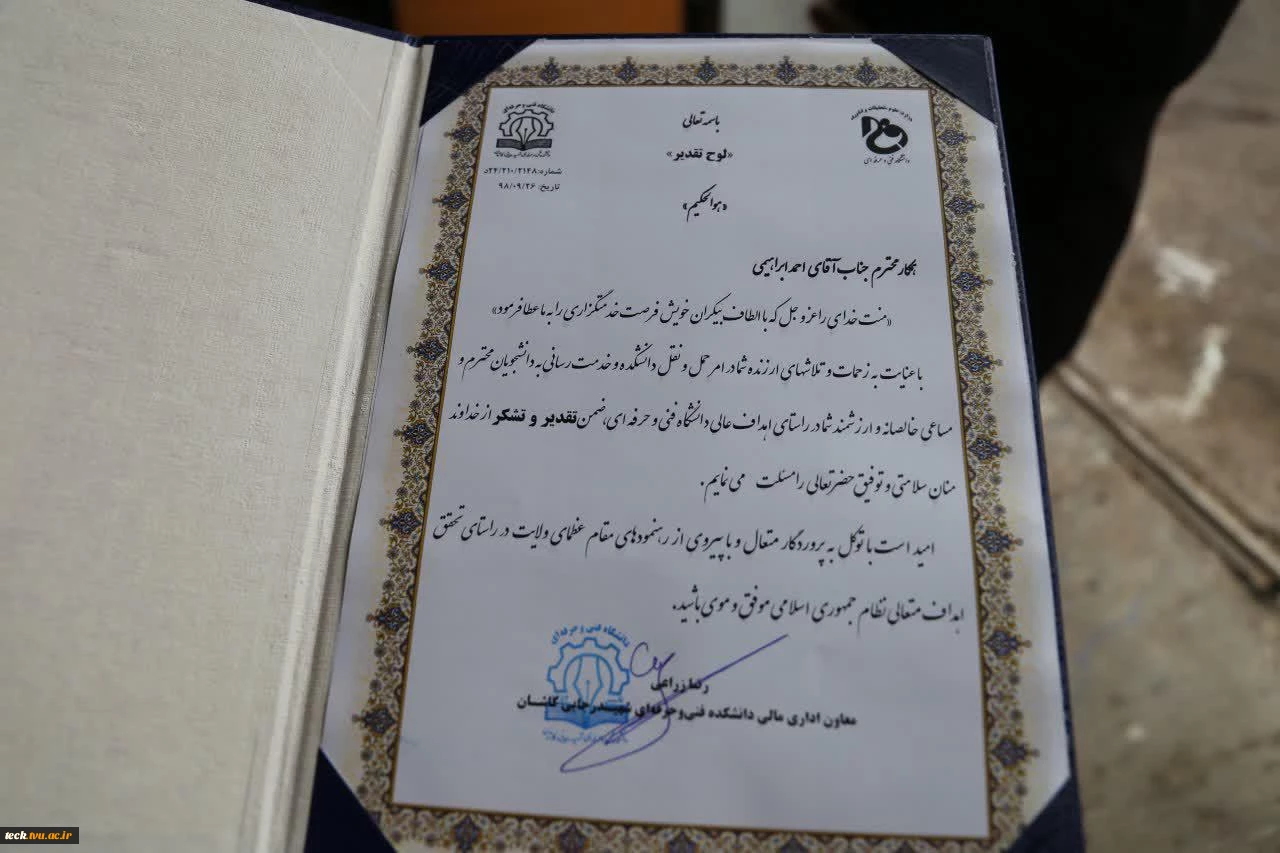 باسمه تعالی
«لوح تقدیر»
«هوالحکیم»
دانشگاه فنی و حرفه‌ای
شماره: ۲۴/۲۱۰/۲۱۴۸د
تاریخ: ۹۸/۰۹/۲۶
وزارت علوم، تحقیقات و فناوری
دانشگاه فنی و حرفه ای
همکار محترم جناب آقای احمد ابراهیمی
«منت خدای را عز و جل که با الطاف بیکران خویش فرصت خدمتگزاری را به ما عطا فرمود»
با عنایت به زحمات و تلاشهای ارزنده شما در امر حمل و نقل دانشکده و خدمت رسانی به دانشجویان محترم و
مساعی خالصانه و ارزشمند شما در راستای اهداف عالی دانشگاه فنی و حرفه ای، ضمن تقدیر و تشکر از خداوند
منان سلامتی و توفیق حضرتعالی را مسئلت می نمایم.
امید است با توکل به پروردگار متعال و با پیروی از رهنمودهای مقام عظمای ولایت در راستای تحقق
اهداف متعالی نظام جمهوری اسلامی موفق و موی باشید.
دانشگاه فنی و حرفه‌ای
رضا زراعی
معاون اداری مالی دانشکده فنی‌وحرفه‌ای شهید رجایی کاشان
teck.tvu.ac.ir